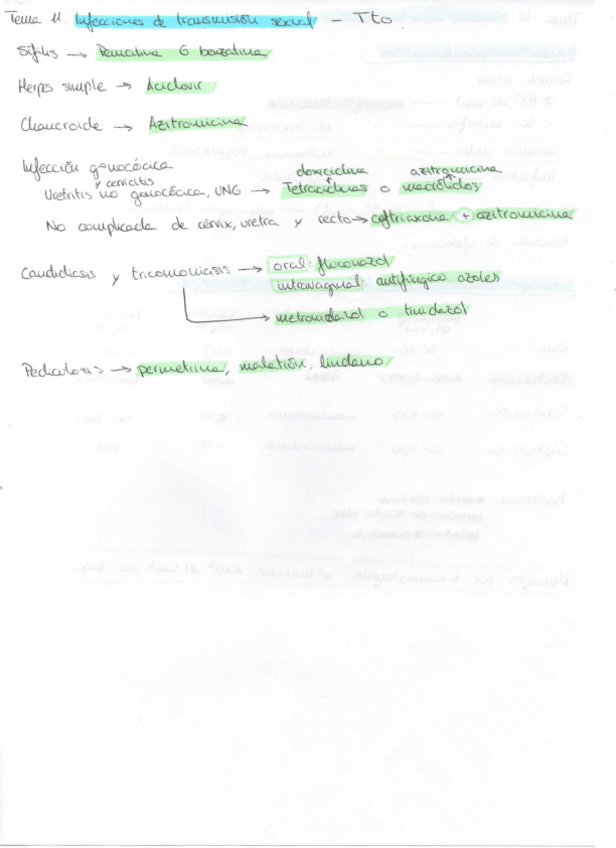 Tema 11. Infecciones de transmisión sexual - Tto
Sífilis → Penicilina G benzatina
Herpes simple → Aciclovir
Chancroide → Azitromicina
Infección gonocócica
doxiciclina azitromicina
y cervicitis
Uretritis no gonocócica, UNG → Tetraciclinas o macrólidos
No complicada de cérvix, uretra y recto → ceftriaxona + azitromicina
Candidiasis y tricomoniasis → oral: fluconazol
intravaginal: antifúngico azoles
→ metronidazol o tinidazol
Pediculosis → permetrina, malatión, lindano